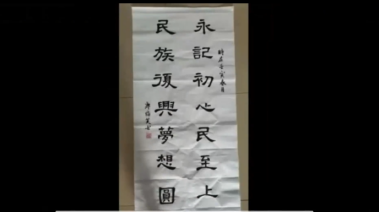 永記初心民至上
民族復興夢想圓